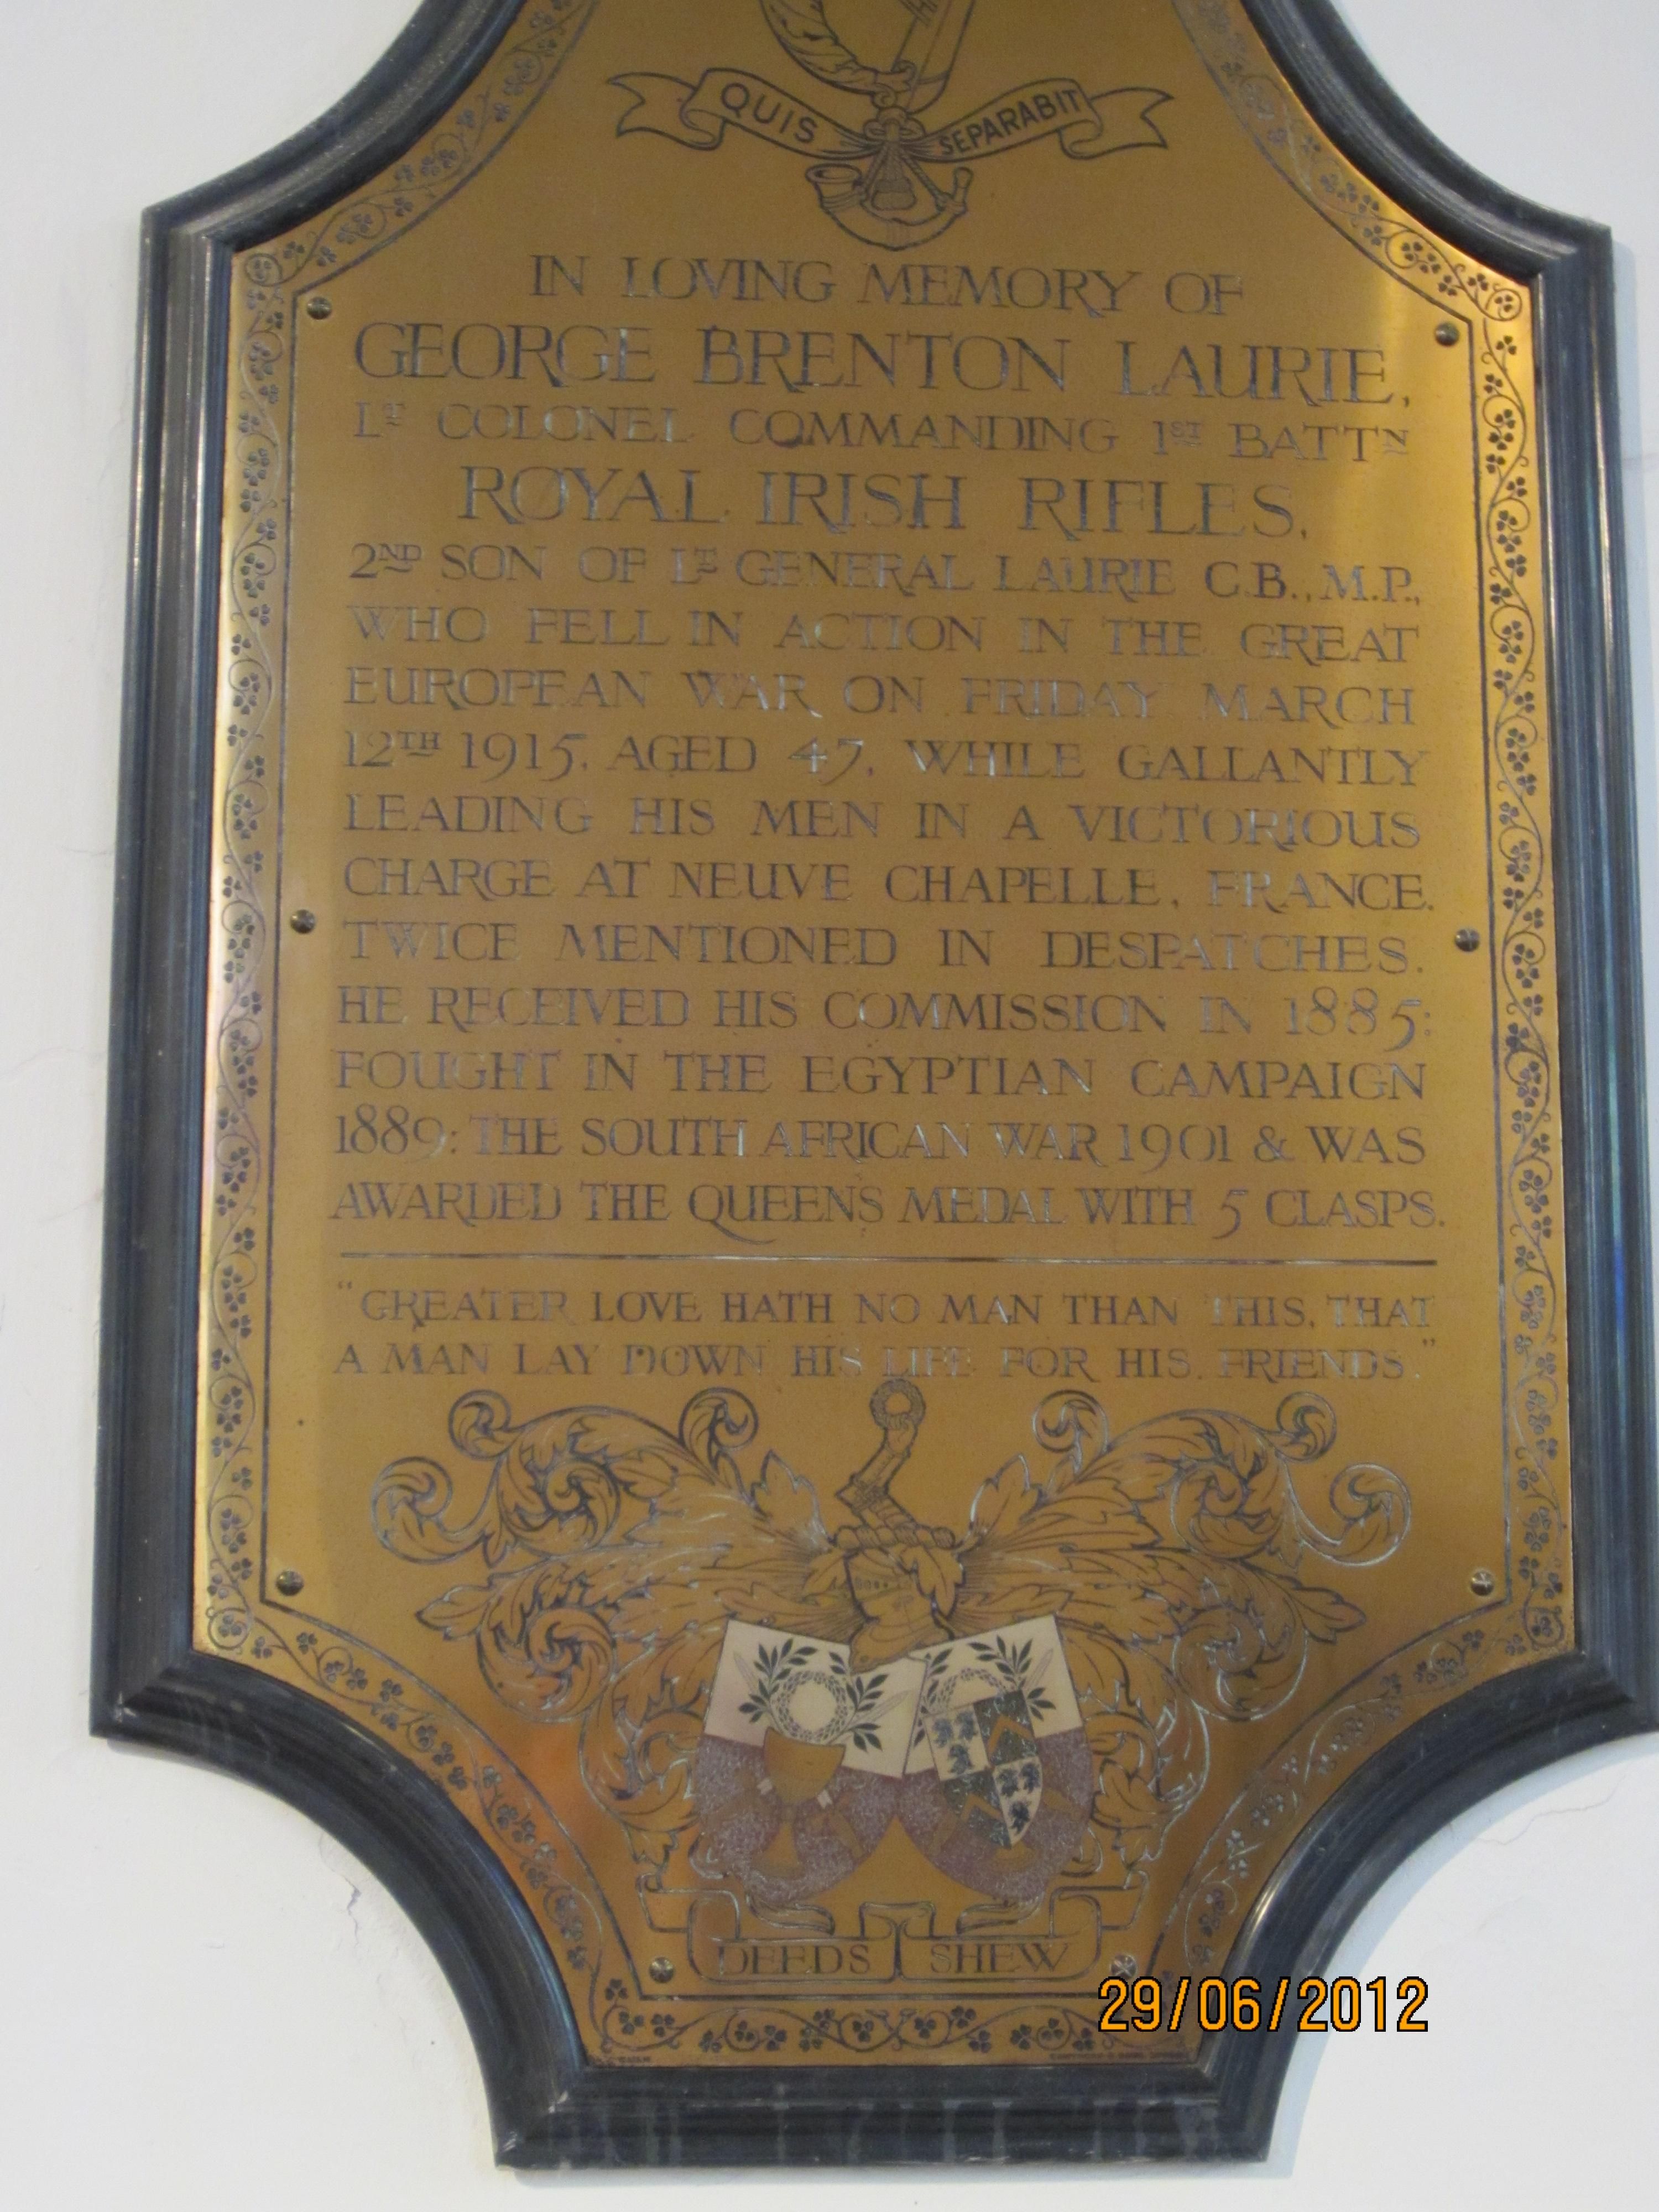 QUIS SEPARABIT
IN LOVING MEMORY OF
GEORGE BRENTON LAURIE,
LT COLONEL COMMANDING 1ST BATTN
ROYAL IRISH RIFLES,
2ND SON OF LT GENERAL LAURIE C.B., M.P.,
WHO FELL IN ACTION IN THE GREAT
EUROPEAN WAR ON FRIDAY MARCH
12TH 1915, AGED 47, WHILE GALLANTLY
LEADING HIS MEN IN A VICTORIOUS
CHARGE AT NEUVE CHAPELLE, FRANCE.
TWICE MENTIONED IN DESPATCHES.
HE RECEIVED HIS COMMISSION IN 1885:
FOUGHT IN THE EGYPTIAN CAMPAIGN
1889: THE SOUTH AFRICAN WAR 1901 & WAS
AWARDED THE QUEENS MEDAL WITH 5 CLASPS.
"GREATER LOVE HATH NO MAN THAN THIS, THAT
A MAN LAY DOWN HIS LIFE FOR HIS FRIENDS."
DEEDS SHEW
29/06/2012